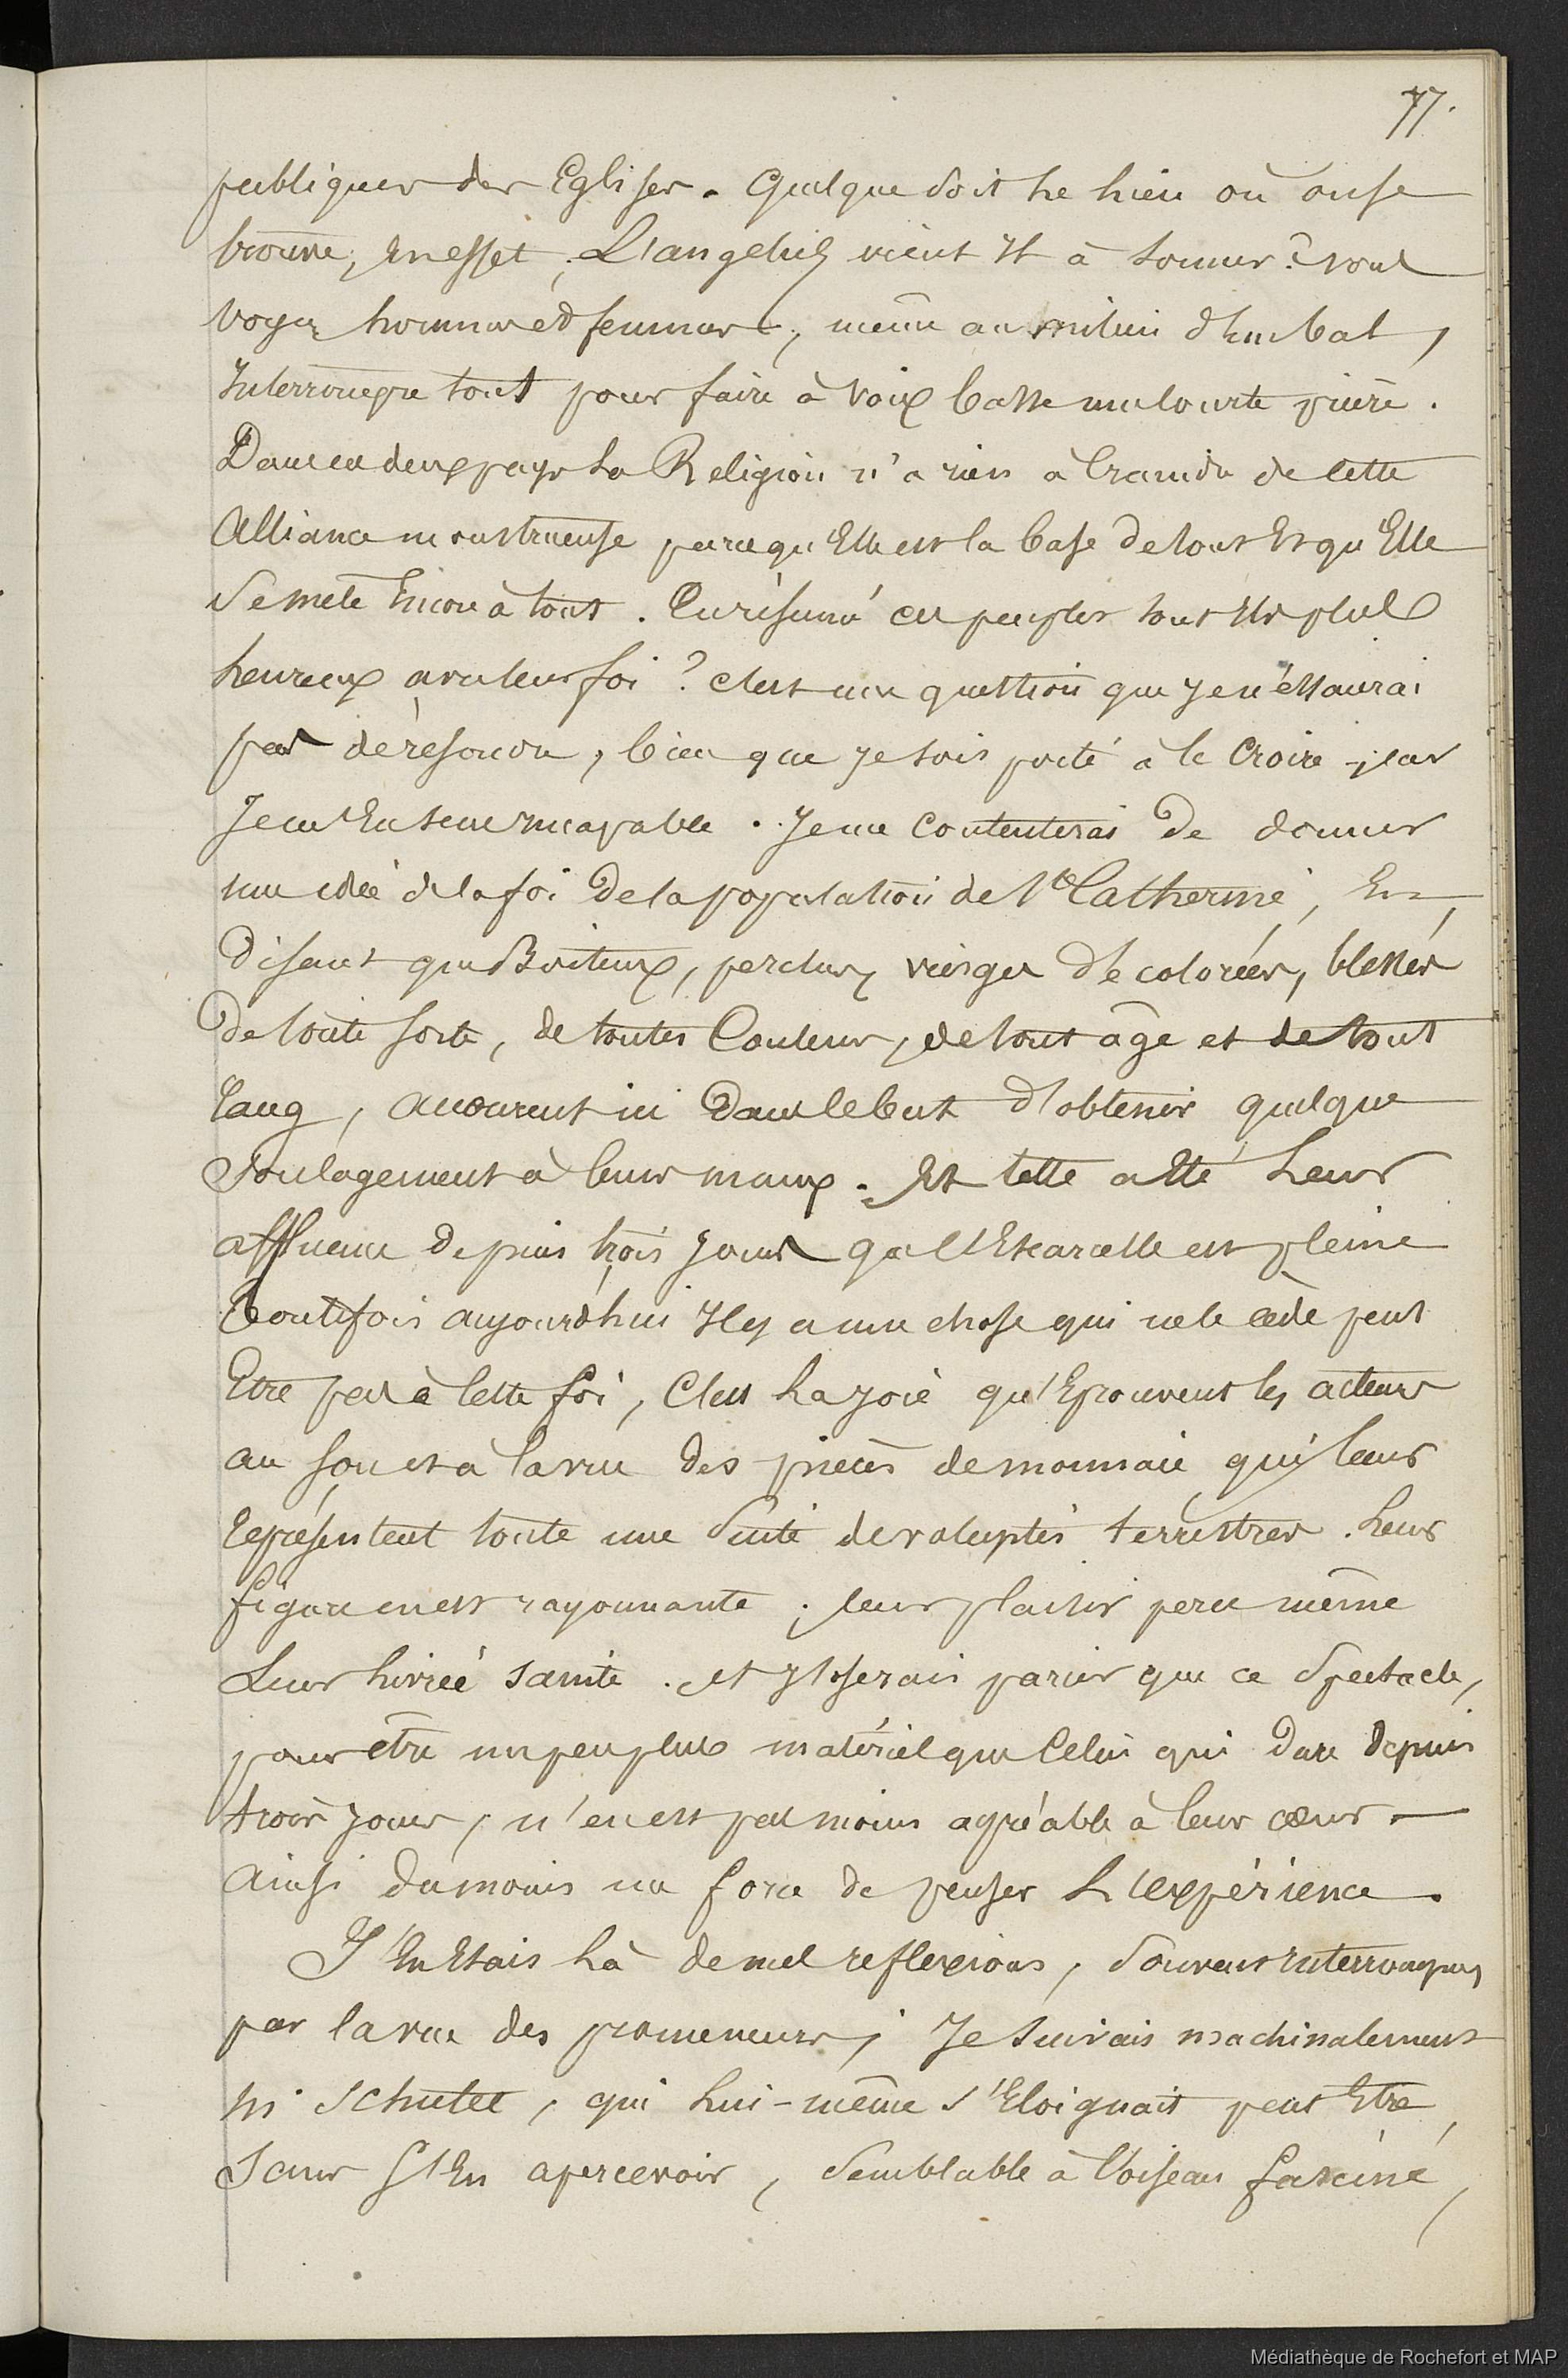 77.
publiques des Eglises. Quelque soit le lieu où on se
trouve, en effet, L'angelus vient il à sonner? vous
voyez hommes et femmes, même au milieu d'un bal,
Interrompre tout pour faire à voix basse une courte prière.
Dans ces deux pays La Religion n'a rien à craindre de cette
Alliance monstrueuse parce qu'Elle est la base de tout Et qu'Elle
Se mêle Encore à tout. En résumé ces peuples sont ils plus
heureux avec leur foi? c'est une question que je n'essaurai
pas de résoudre, bien que je sois porté à le croire, car
Je m'En sens incapable. Je me contenterai De donner
une idée de la foi De la population de Ste Catherine, En
Disant que Boiteux, perclus, vierges décolorées, blessés
De toute sorte, de toutes Couleurs, de tout âge et de tout
rang, accourent ici Dans le but d'obtenir quelque
Soulagement à leurs maux. Et telle a été Leur
affluence depuis trois jours que l'Escarcelle est pleine
Toutefois aujourd'hui Il y a une chose qui ne le cède peut
Etre pas à cette foi, C'est La joie qu'Eprouvent les acteurs
au son et à la vue des pièces de monnaie qui leur
représentent toute une Suite de voluptés terrestres. Leur
figure en est rayonnante; leur plaisir perce même
Leur Livrée sainte. Et j'oserais parier que ce Spectacle,
pour être un peu plus matériel que Celui qui Dure Depuis
trois jours, n'en est pas moins agréable à leur cœur.
Ainsi du moins me force de penser L'expérience.
J'En Etais Là de mes reflexions, Souvent interrompues
par la vue des promeneurs; Je suivais machinalement
Mr Schutee, qui Lui-même s'Eloignait peut Etre
Sans S'En apercevoir, Semblable à l'oiseau fasciné,
Médiathèque de Rochefort et MAP